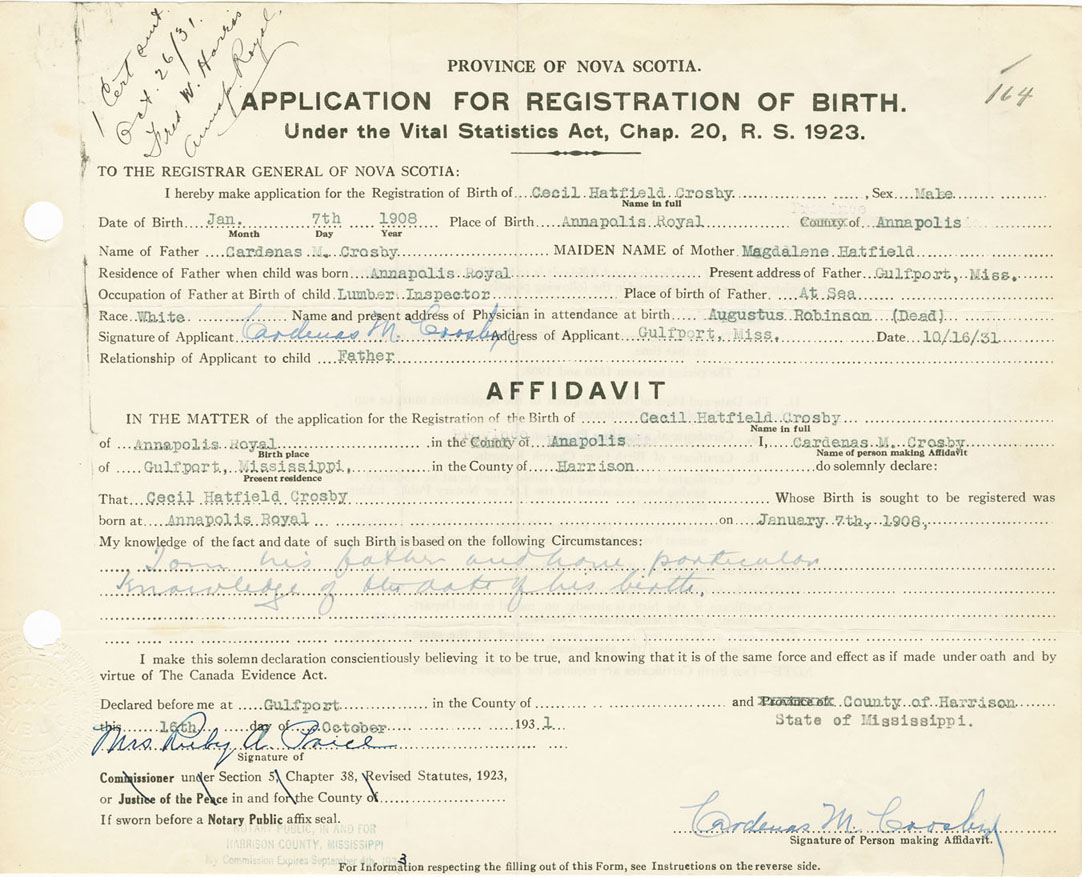 1 Cert sent.
Oct. 26/31.
Fred W. Harris
Annap. Royal.
164
PROVINCE OF NOVA SCOTIA.
APPLICATION FOR REGISTRATION OF BIRTH.
Under the Vital Statistics Act, Chap. 20, R. S. 1923.
TO THE REGISTRAR GENERAL OF NOVA SCOTIA:
I hereby make application for the Registration of Birth of Cecil Hatfield Crosby, Sex Male
Name in full
Date of Birth Jan. 7th 1908 Place of Birth Annapolis Royal County of Annapolis
Month Day Year
Name of Father Cardenas M. Crosby MAIDEN NAME of Mother Magdalene Hatfield
Residence of Father when child was born Annapolis Royal Present address of Father Gulfport, Miss.
Occupation of Father at Birth of child Lumber Inspector Place of birth of Father At Sea
Race White Name and present address of Physician in attendance at birth Augustus Robinson (Dead)
Signature of Applicant Cardenas M. Crosby Address of Applicant Gulfport, Miss. Date 10/16/31
Relationship of Applicant to child Father
AFFIDAVIT
IN THE MATTER of the application for the Registration of the Birth of Cecil Hatfield Crosby
Name in full
of Annapolis Royal in the County of Anapolis I, Cardenas M. Crosby
Birth place Name of person making Affidavit
of Gulfport, Mississippi, in the County of Harrison do solemnly declare:
Present residence
That Cecil Hatfield Crosby Whose Birth is sought to be registered was
born at Annapolis Royal on January 7th, 1908,
My knowledge of the fact and date of such Birth is based on the following Circumstances:
I am his father and have particular
knowledge of the date of his birth.
I make this solemn declaration conscientiously believing it to be true, and knowing that it is of the same force and effect as if made under oath and by
virtue of The Canada Evidence Act.
Declared before me at Gulfport in the County of and Province of County of Harrison
this 16th day of October 1931 State of Mississippi.
Mrs Ruby A. Price
Signature of
Commissioner under Section 5, Chapter 38, Revised Statutes, 1923,
or Justice of the Peace in and for the County of
If sworn before a Notary Public affix seal.
NOTARY PUBLIC, IN AND FOR
HARRISON COUNTY, MISSISSIPPI
My Commission Expires September 4th, 1933
Cardenas M. Crosby
Signature of Person making Affidavit.
For Information respecting the filling out of this Form, see Instructions on the reverse side.